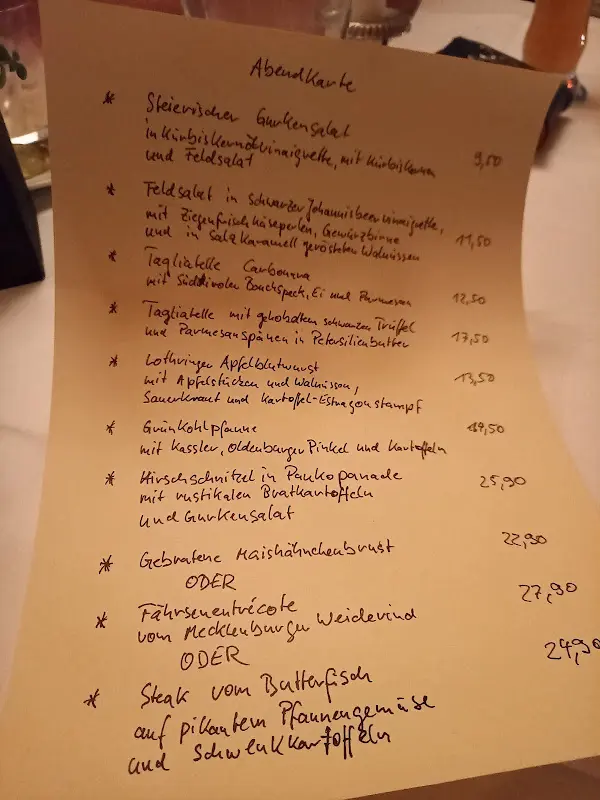 Abendkarte
* Steierischer Gurkensalat
in Kürbiskernölvinaigrette, mit Kürbiskernen 9,50
und Feldsalat
* Feldsalat in schwarzer Johannisbeervinaigrette,
mit Ziegenfrischkäseperlen, Gewürzbirne
und in Salzkaramell gerösteten Walnüssen 11,50
* Tagliatelle Carbonara
mit Südtiroler Bauchspeck, Ei und Parmesan 12,50
* Tagliatelle mit gehobelten schwarzen Trüffel
und Parmesanspänen in Petersilienbutter 17,50
* Lothringer Apfelblutwurst
mit Apfelstücken und Walnüssen, 13,50
Sauerkraut und Kartoffel-Estragonstampf
* Grünkohlpfanne 19,50
mit Kassler, Oldenburger Pinkel und Kartoffeln
* Hirschschnitzel in Pankopanade 25,90
mit rustikalen Bratkartoffeln
und Gurkensalat
* Gebratene Maishähnchenbrust 22,90
ODER
* Färsenentrécote 27,90
vom Mecklenburger Weiderind
ODER
* Steak vom Butterfisch 24,90
auf pikantem Pfannengemüse
und Schwenkkartoffeln